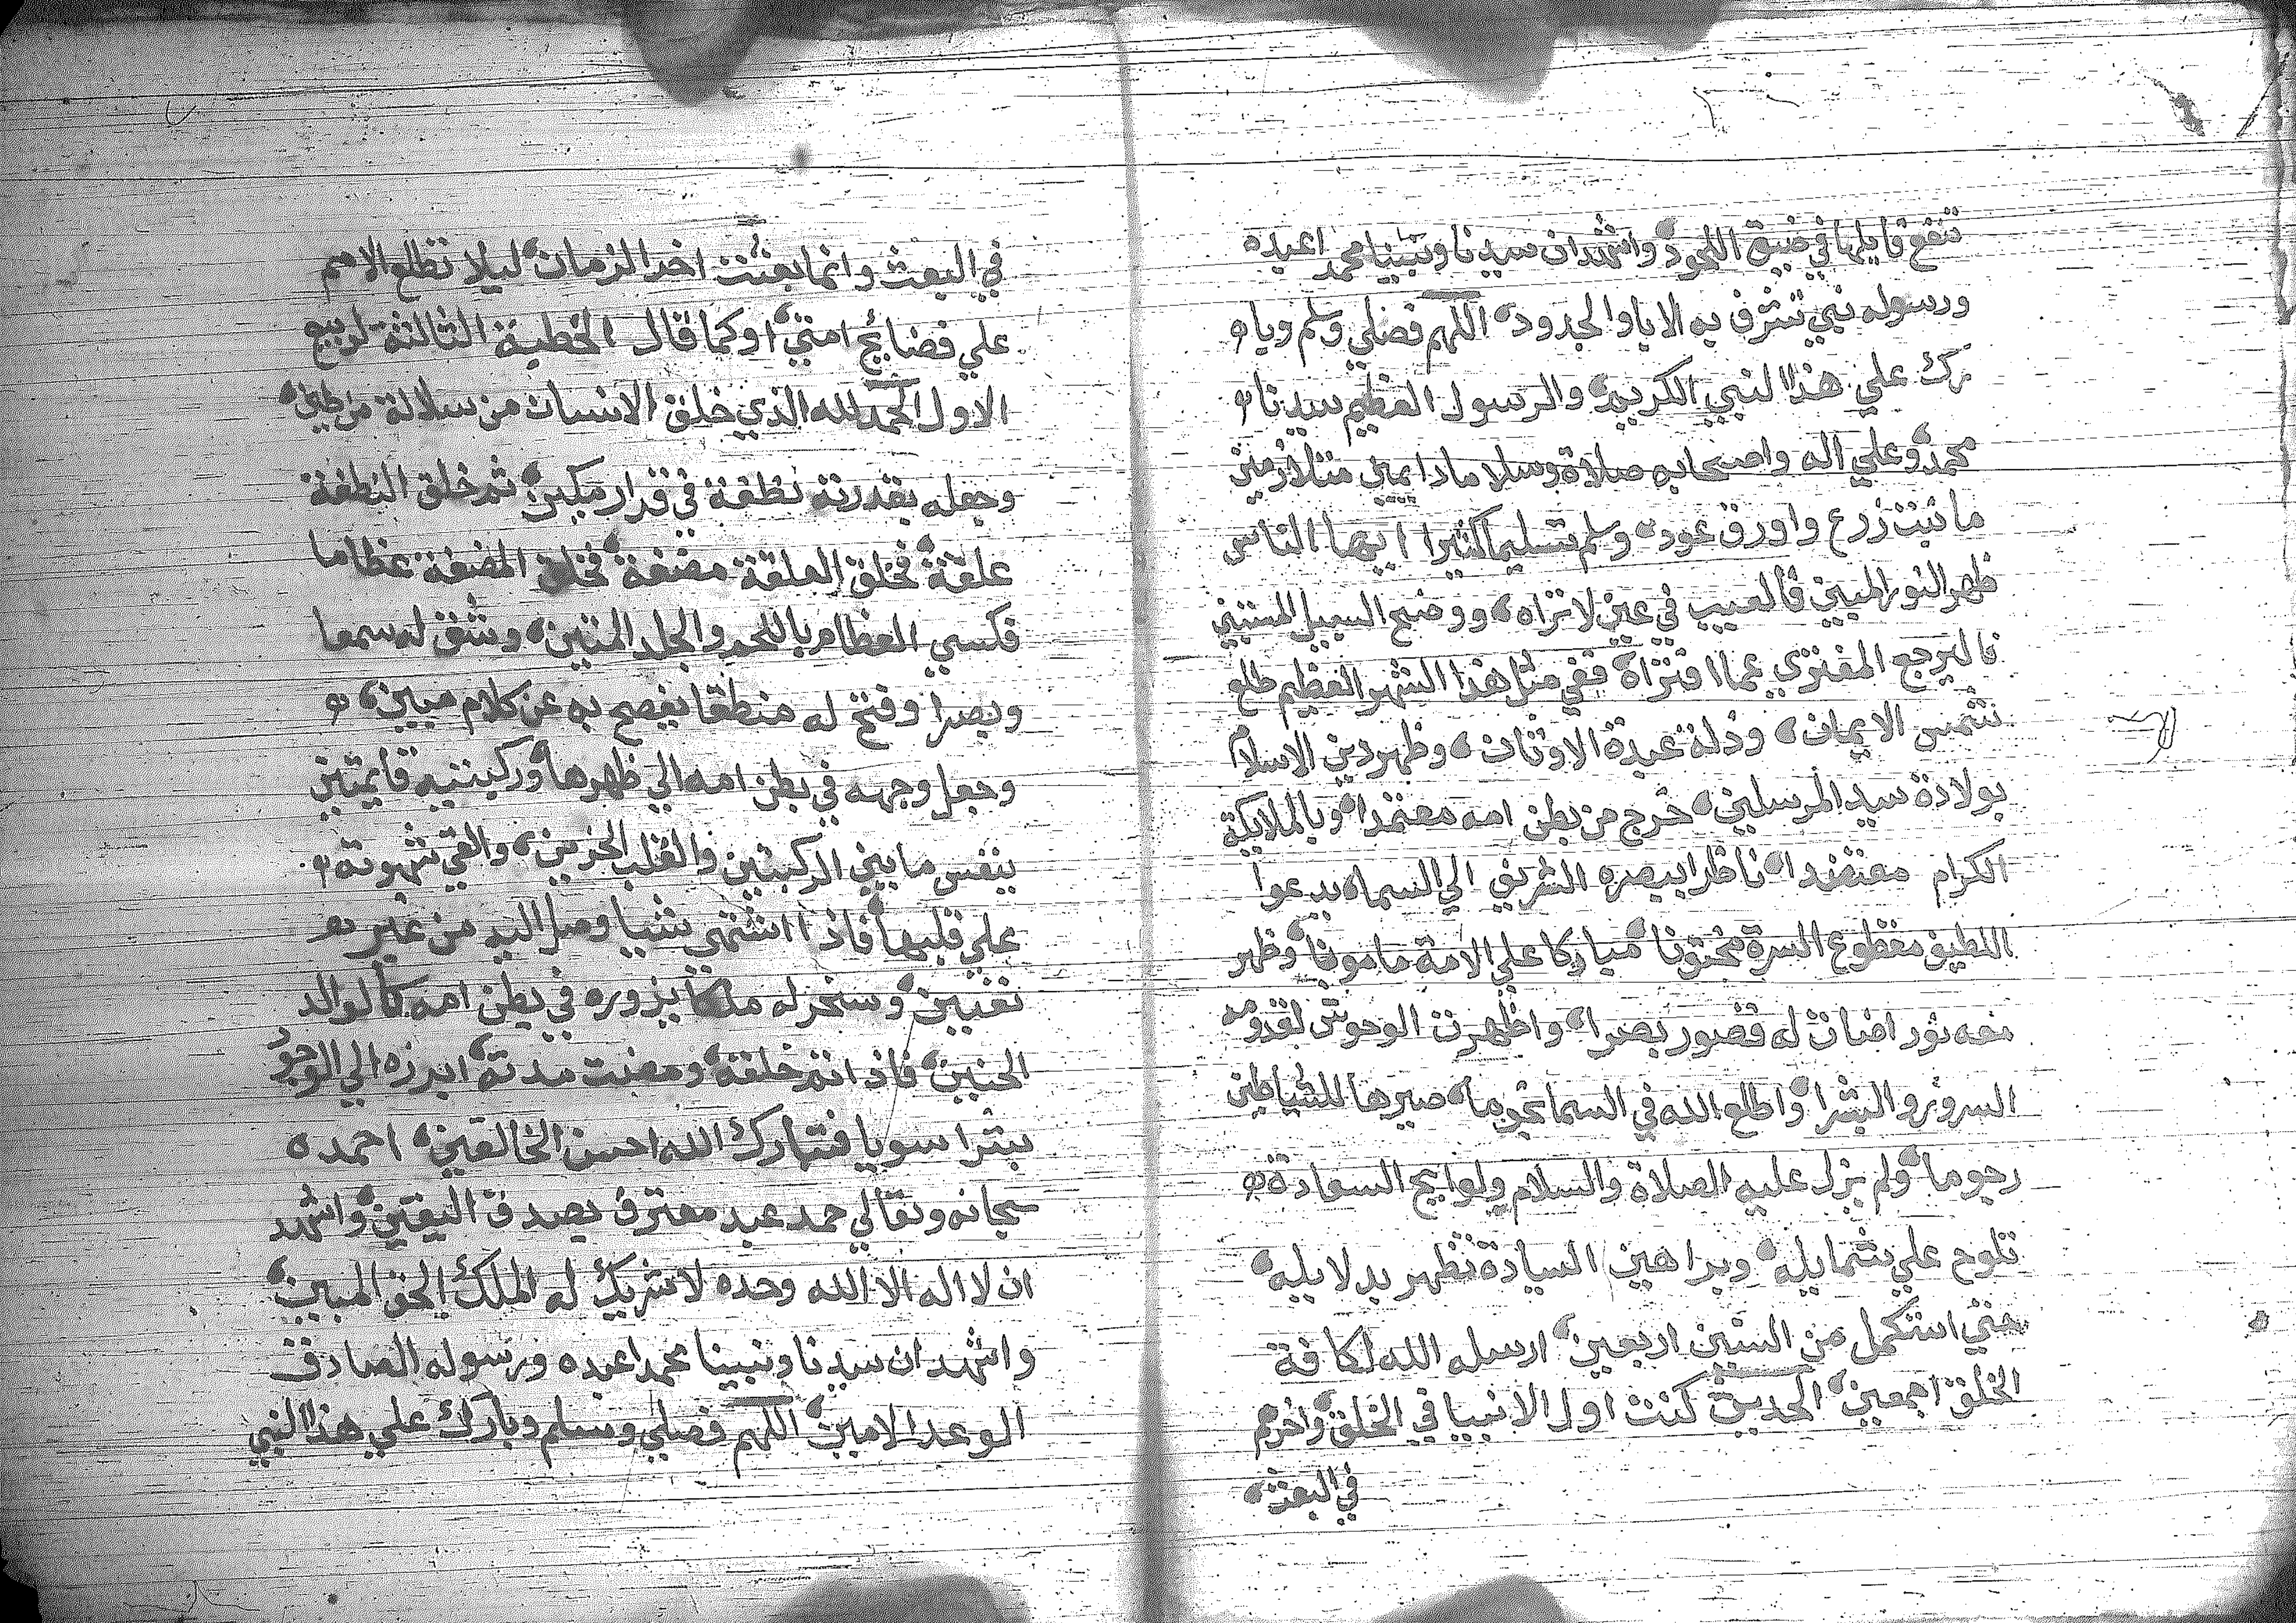 تنفع قايلها في ضيق اللحود واشهد ان سيدنا ونبينا محمد اعبده
ورسوله نبي تشرف به الابا والجدود اللهم فصلي وسلم وبا
رك علي هذا النبي الكريم والرسول العظيم سيدنا
محمد وعلي اله واصحابه صلاة وسلاما دايمين متلازمين
ما نبت زرع واورق عود وسلم تسليما كثيرا ايها الناس
ظهر النور المبين فالعيب في عين لا تراه ووضح السبيل المستبين
فاليرجع المفتري عما افتراه ففي مثل هذا الشهر العظيم طلع
شمس الايمان وذلة عبدة الاوثان وظهر دين الاسلام
بولادة سيد المرسلين خرج من بطن امه معتمدا وبالملايكة
الكرام معتضدا ناظرا ببصره الشريف الي السما يدعوا
اللطيف مقطوع السرة مختونا مباركا علي الامة مامونا وظهر
معه نور اضات له قصور بصرا واظهرت الوحوش لقدومه
السرور والبشرا واطلع الله في السما نجوما صيرها للشياطين
رجوما ولم يزل عليه الصلاة والسلام ولوايح السعادة
تلوح علي شمايله وبراهين السيادة تظهر بدلايله
حتي استكمل من السنين اربعين ارسله الله لكافة
الخلق اجمعين الحديث كنت اول الانبيا في الخلق واخرهم
في البعث
في البعث وانما بعثت اخر الزمان ليلا تطلع الامم
علي فضايح امتي اوكما قال الخطبة الثالثة لربيع
الاول الحمد لله الذي خلق الانسان من سلالة من طين
وجعله بقدرته نطفة في قرار مكين ثم خلق النطفة
علقة فخلق العلقة مضغة فخلق المضغة عظاما
فكسي العظام باللحم والجلد المتين وشق له سمعا
وبصرا وفتح له منطقا يفصح به عن كلام مبين
وجعل وجهه في بطن امه الي ظهرها وركبتيه قايمتين
يتنفس ما بين الركبتين والقلب الحزين والقي شهوته
علي قلبها فاذا اشتهي شيا وصل اليه من غير
تغيين وسخر له ملكا يزوره في بطن امه كالوالد
الحنين فاذا تم خلقه ومضت مدته ابرزه الي الوجود
بشرا سويا فتبارك الله احسن الخالقين احمده
سبحانه وتعالي حمد عبد معترف بصدق اليقين واشهد
ان لا اله الا الله وحده لا شريك له الملك الحق المبين
واشهد ان سيدنا ونبينا محمدا عبده ورسوله الصادق
الوعد الامين اللهم فصلي وسلم وبارك علي هذا النبي